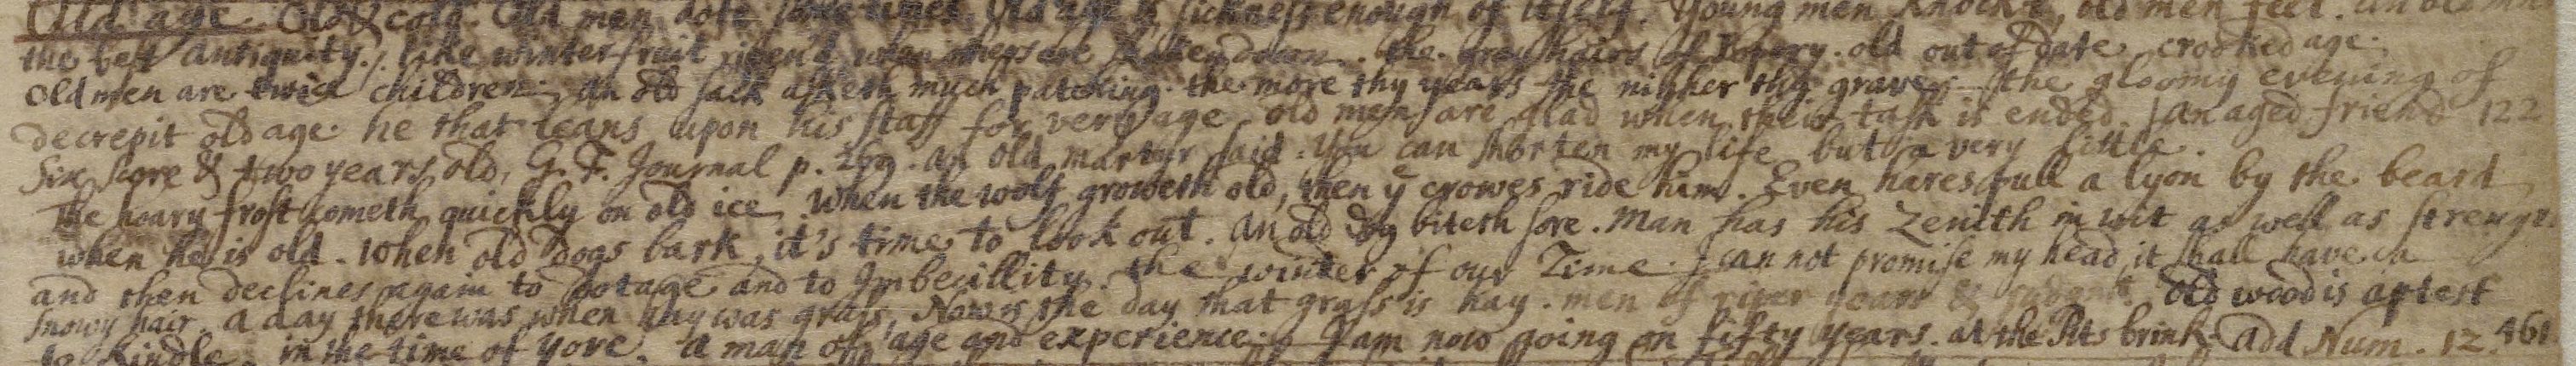 Old age. Old & cold. Old men dote sometimes. Old age is sickness enough of itself. Young men knockt, old men feel. an old man
the best antiquity. like winter fruit ripen'd when others are shaken down. the gray hairs of Popery. old out of date crooked age.
Old men are twice children. an old sack asketh much patching. the more thy years the nigher thy grave. the gloomy evening of
decrepit old age. he that leans upon his staff for very age. old men are glad when their task is ended. an aged friend 122
Six score & two years old, G. F. Journal p. 269. an old martyr said: You can shorten my life but a very little.
The hoary frost cometh quickly on old ice. When the wolf groweth old, then ye crowes ride him. Even hares pull a lyon by the beard
when he is old. When old Dogs bark, it's time to look out. an old dog biteth sore. Man has his Zenith in wit as well as strengt
and then declines again to Dotage and to Imbecillity. the winter of our Time. I can not promise my head, it shall have a
snowy hair. a day there was when hay was grass, Now is the day that grass is hay. men of riper years & old wood is aptest
to kindle. in the time of Yore. a man of age and experience. I am now going on fifty years. at the Pits brink. add Num. 12. 461